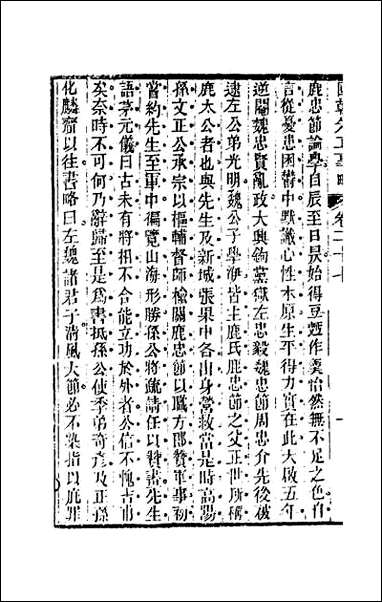 國朝先正事略 卷二十七
鹿忠節論學自辰至日昃始得豆麵作羹怡然無不足之色自
言從憂患困鬱中默識心性本原生平得力實在此天啟五年
逆閹魏忠賢亂政大興鉤黨獄左忠毅魏忠節周忠介先後被
逮左公弟光明魏公子學洢皆主鹿氏鹿忠節之父正世所稱
鹿太公者也與先生及新城張果中各出身營救當是時高陽
孫文正公承宗以樞輔督師榆關鹿忠節以職方郎贊軍事初
嘗約先生至軍中徧覽山海形勝孫公將疏請任以贊畫先生
語茅元儀曰古未有將相不合能立功於外者公信不愧古而
矣奈時不可何乃辭歸至是為書抵孫公使季弟奇彥及正孫
化麟齎以往書略曰左魏諸君子清風大節必不染指以庇罪